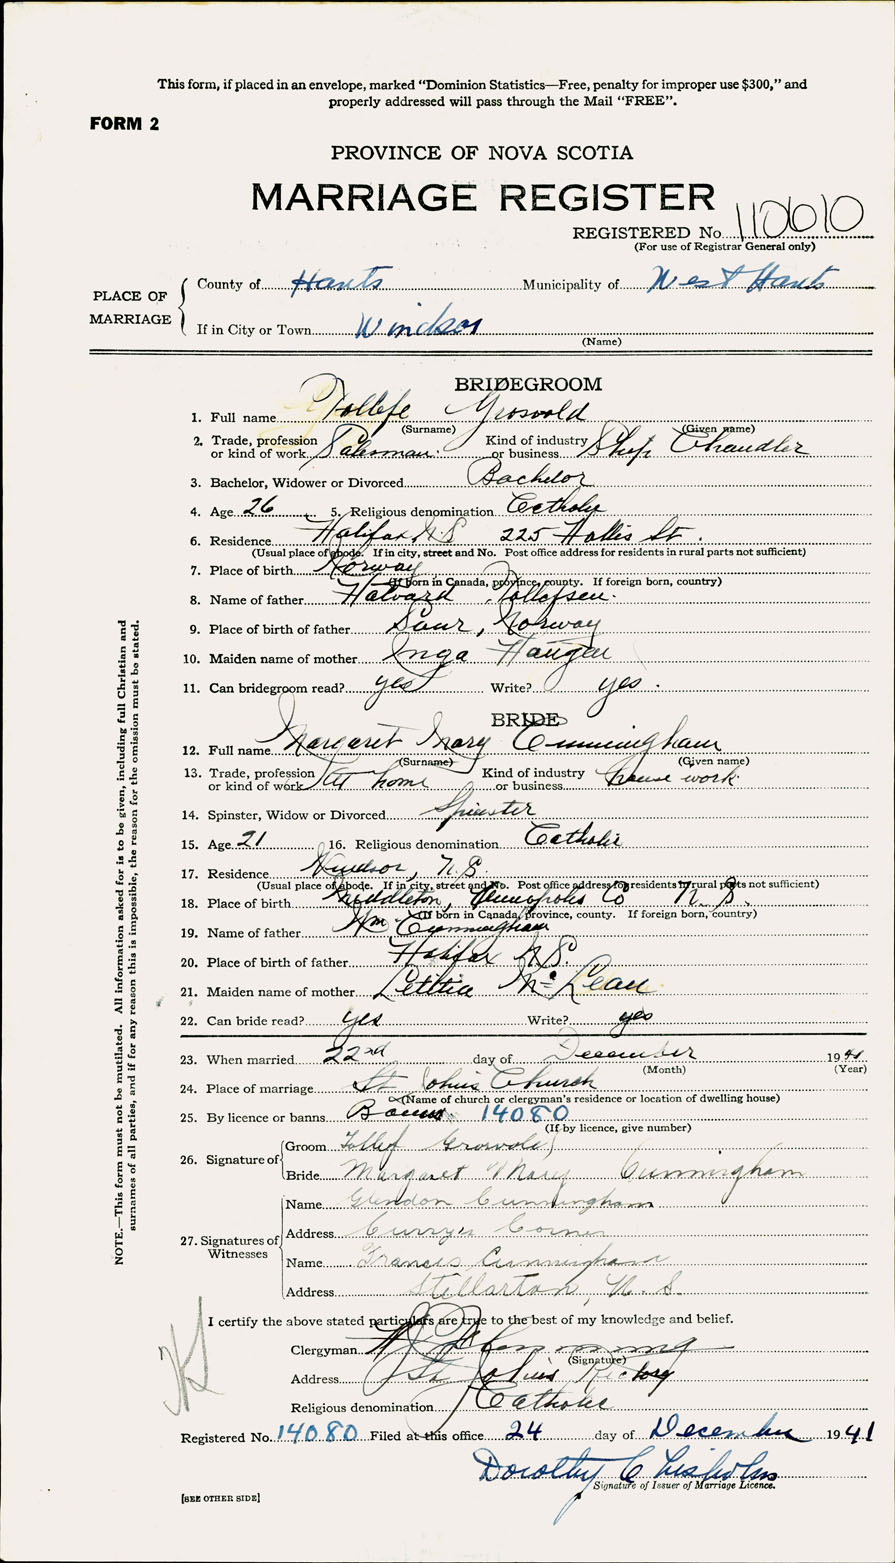 This form, if placed in an envelope, marked “Dominion Statistics—Free, penalty for improper use $300,” and
properly addressed will pass through the Mail “FREE”.
FORM 2
PROVINCE OF NOVA SCOTIA
MARRIAGE REGISTER
REGISTERED No. 110610
(For use of Registrar General only)
PLACE OF MARRIAGE
County of Hants Municipality of West Hants
If in City or Town Windsor
(Name)
BRIDEGROOM
1. Full name Tollefe Grosvold
(Surname) (Given name)
2. Trade, profession or kind of work Salesman. Kind of industry or business Ship Chandler
3. Bachelor, Widower or Divorced Bachelor
4. Age 26 5. Religious denomination Catholic
6. Residence Halifax N.S 225 Hollis St.
(Usual place of abode. If in city, street and No. Post office address for residents in rural parts not sufficient)
7. Place of birth Norway
(If born in Canada, province, county. If foreign born, country)
8. Name of father Halvard Tollefsen.
9. Place of birth of father Saur, Norway
10. Maiden name of mother Inga Haugen
11. Can bridegroom read? yes Write? yes.
BRIDE
12. Full name Margaret Mary Cunningham
(Surname) (Given name)
13. Trade, profession or kind of work At home Kind of industry or business house work
14. Spinster, Widow or Divorced Spinster
15. Age 21 16. Religious denomination Catholic
17. Residence Windsor, N.S.
(Usual place of abode. If in city, street and No. Post office address for residents in rural parts not sufficient)
18. Place of birth Middleton, Annapolis Co N.S.
(If born in Canada, province, county. If foreign born, country)
19. Name of father Wm Cunningham
20. Place of birth of father Halifax N.S.
21. Maiden name of mother Letitia Mc Lean
22. Can bride read? yes Write? yes
23. When married 22nd day of December 1941
(Month) (Year)
24. Place of marriage St John's Church
(Name of church or clergyman's residence or location of dwelling house)
25. By licence or banns Banns 14080
(If by licence, give number)
26. Signature of
Groom Tollef Grosvold
Bride Margaret Mary Cunningham
27. Signatures of Witnesses
Name Glendon Cunningham
Address Currys Corner
Name Francis Cunningham
Address Stellarton, N.S.
I certify the above stated particulars are true to the best of my knowledge and belief.
Clergyman
(Signature)
Address St John's Rectory
Religious denomination Catholic
Registered No. 14080 Filed at this office 24 day of December 1941
Dorothy Chisholm
Signature of Issuer of Marriage Licence.
[SEE OTHER SIDE]
NOTE.—This form must not be mutilated. All information asked for is to be given, including full Christian and
surnames of all parties, and if for any reason this is impossible, the reason for the omission must be stated.